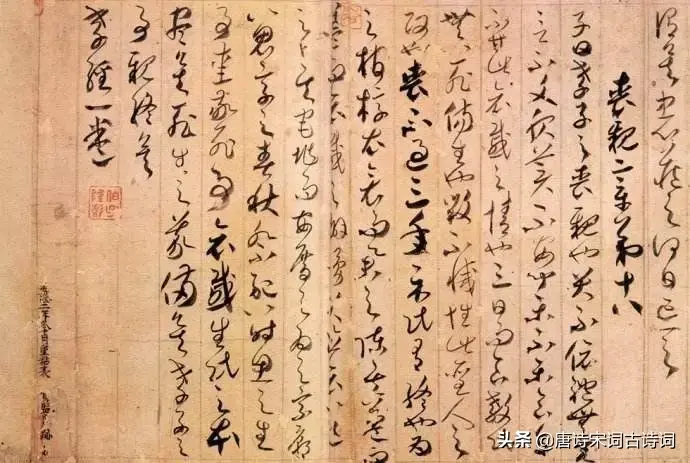 謂矣中心藏之何日忘之
喪親章第十八
子曰孝子之喪親也哭不依禮無容
言不文服美不安聞樂不樂食旨
不甘此哀慼之情也三日而食教民
無以死傷生也毀不滅性此聖人之
政也喪不過三年示民有終也為
之棺槨衣衾而舉之陳其簠簋而
哀慼之擗踴哭泣哀以送
之卜其宅兆而安厝之為之宗廟
以鬼享之春秋祭祀以時思之生
事愛敬死事哀慼生民之本
盡矣死生之義備矣孝子之
事親終矣
孝經一卷
头条 @唐诗宋词古诗词